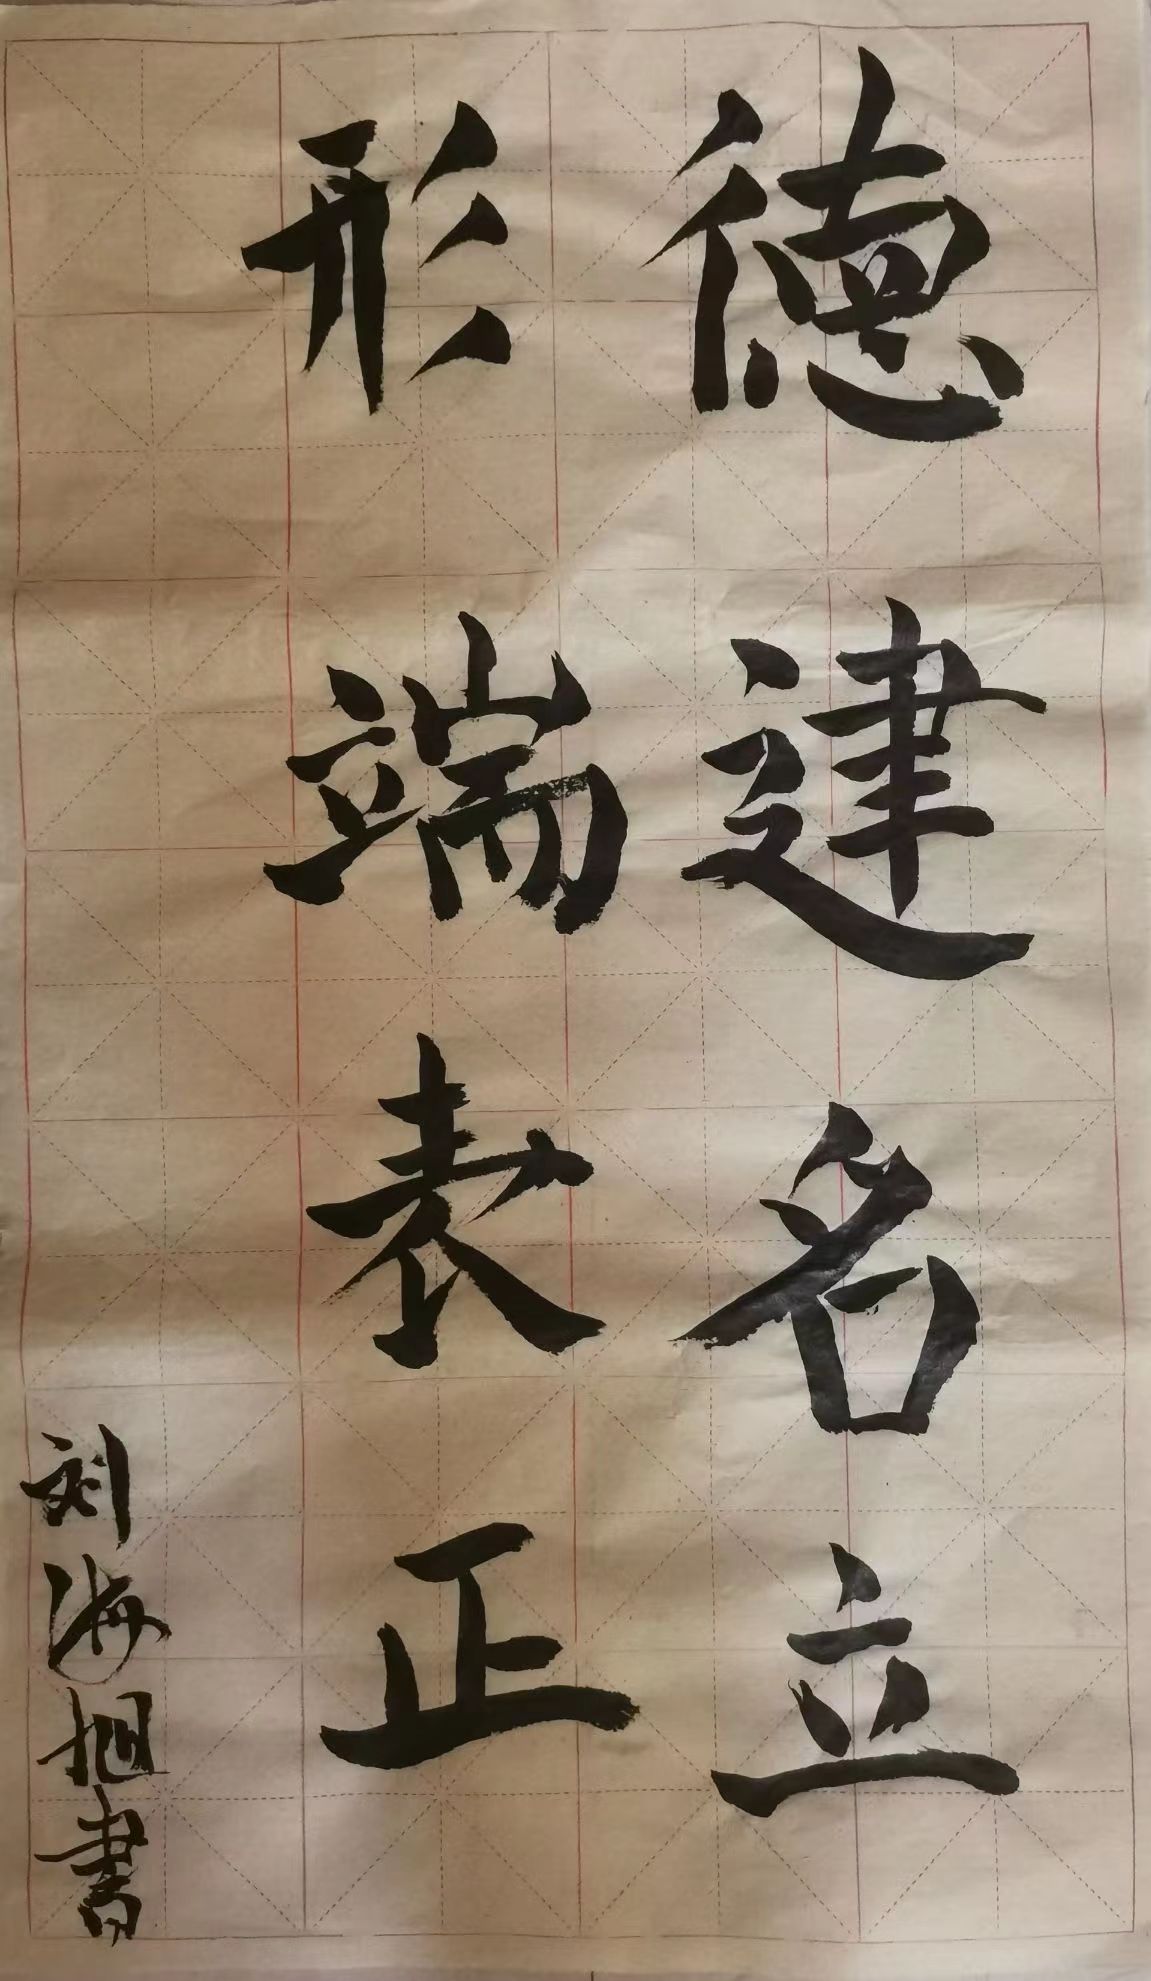 德建名立
形端表正
刘海旭書